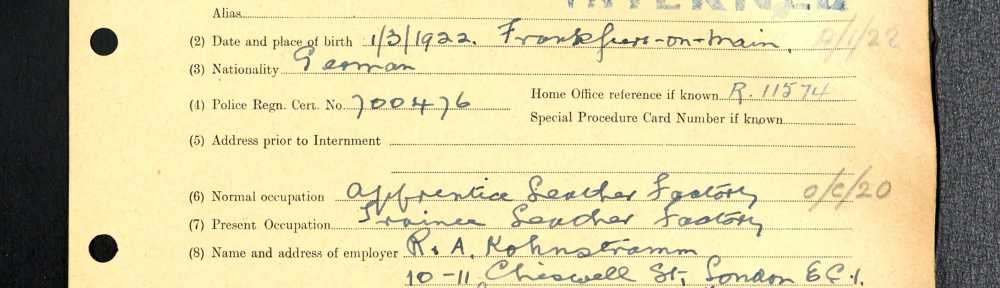 INTERNED
Alias
(2) Date and place of birth 1/3/1922. Frankfurt-on-Main.
(3) Nationality German
(4) Police Regn. Cert. No. 700476 Home Office reference if known R. 11574
Special Procedure Card Number if known
(5) Address prior to Internment
(6) Normal occupation Apprentice Leather Factory O/C/20
(7) Present Occupation Trainee Leather Factory
(8) Name and address of employer R. A. Kohnstramm
10-11 Chiswell St, London E.C.1.